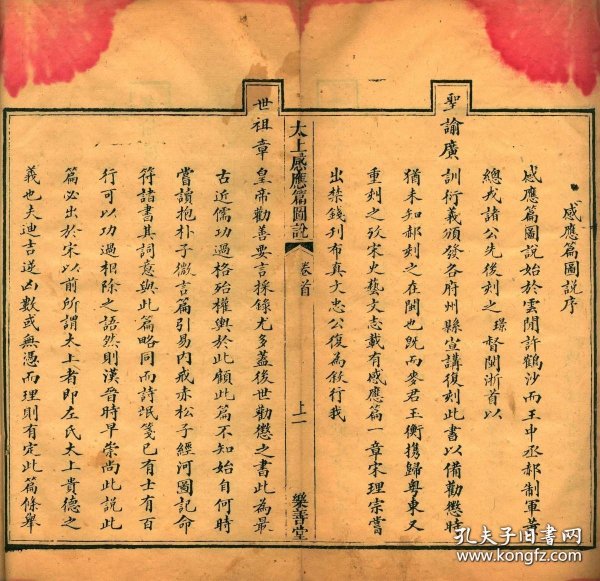 感應篇圖說序
感應篇圖說始於雲間許鶴沙而王中丞郝制軍黃
總戎諸公先後刻之璟督閩浙首以
聖諭廣訓衍義頒發各府州縣宣講復刻此書以備勸懲時
猶未知郝刻之在閩也既而麥君玉衡携歸粵東又
重刻之攷宋史藝文志載有感應篇一章宋理宗嘗
出禁錢刊布真文忠公復為敍行我
太上感應篇圖說
卷首
上二
樂善堂
世祖章皇帝勸善要言採錄尤多蓋後世勸懲之書此為最
古近儒功過格殆權輿於此顧此篇不知始自何時
嘗讀抱朴子微言篇引易內戒赤松子經河圖記命
符諸書其詞意與此篇略同而詩氓箋已有士有百
行可以功過相除之語然則漢晉時早崇尚此說此
篇必出於宋以前所謂太上者即左氏太上貴德之
義也夫迪吉逆凶數或無憑而理則有定此篇條舉
孔夫子旧书网
www.kongfz.com